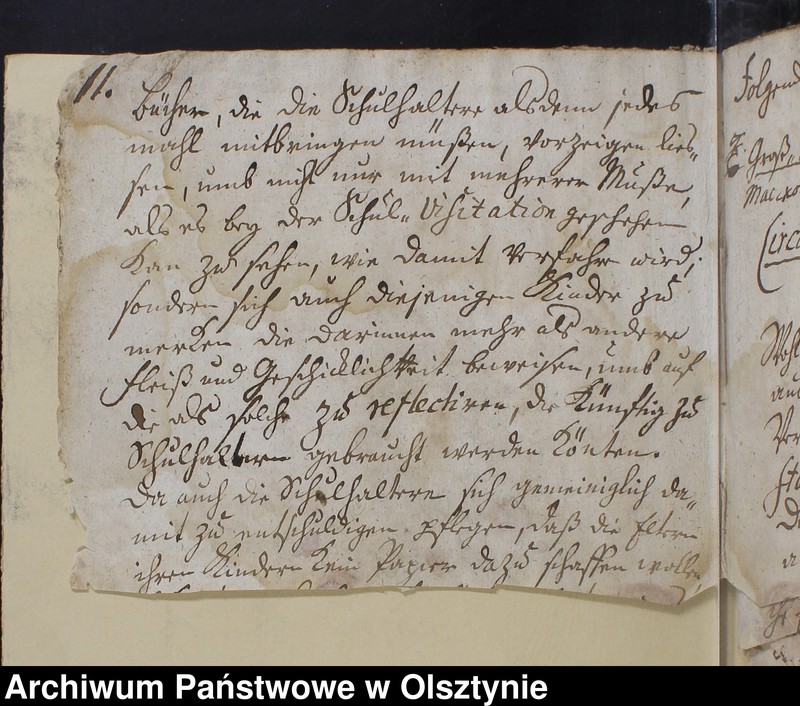 11.
bücher, die die Schulhaltere alsdenn jedes
mahl mitbringen müßen, vorzeigen lies„
sen, umb nicht nur mit mehrerer Muße,
als es bey der Schul„Visitation geschehen
kan zu sehen, wie damit verfahren wird;
sondern sich auch diejenigen Kinder zu
merken die darinnen mehr als andere
Fleiß und Geschicklichkeit beweisen, umb auf
die als solche zu reflectiren, die künftig zu
Schulhaltern gebraucht werden könten.
Da auch die Schulhaltere sich gemeiniglich da„
mit zu entschuldigen pflegen, daß die Eltern
ihren Kindern kein Papier dazu schaffen wollen
Folgend
Groß
Circ
Archiwum Państwowe w Olsztynie